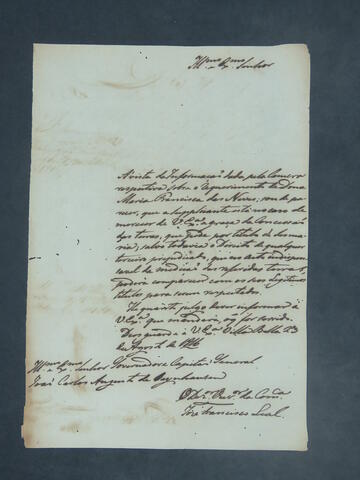 Illmo. Exmo. Senhor
A vista da Informação dada pela Camera
respectiva sobre o requerimento de Dona
Maria Francisca das Neves, sou de pa-
recer, que a supplicante está no caso de
merecer de V. Exa. a graça da Concessaõ
das terras, que pede por titulo de Sesma-
ria, salvo todavia o Direito de qualquer
terceiro prejudicado, que no acto indispen-
savel da medicaõ das referidas terras,
poderá comparecer com os seus legitimos
titulos para serem respeitados.
He quanto julgo dever informar á
V. Exa. que mandará, o q for servido.
Deos guarde a V. Exa. Villa Bella 23
de Agosto de 1816
Illmo. Exmo. Senhor Governador e Capitaõ General
João Carlos Augusto de Oeynhausen
O Dr. Ouvor. da Comca.
Joze Francisco Leal.